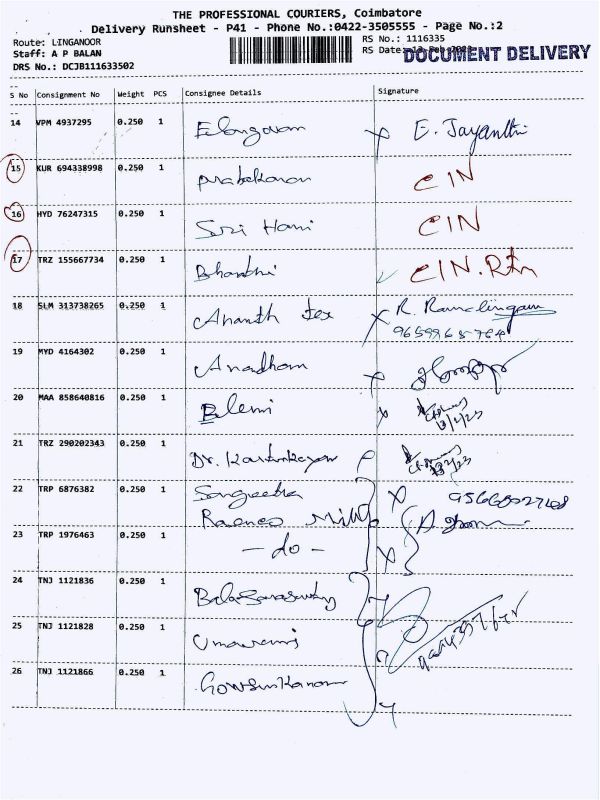 THE PROFESSIONAL COURIERS, Coimbatore
Delivery Runsheet - P41 - Phone No.:0422-3505555 - Page No.:2
Route: LINGANOOR
Staff: A P BALAN
DRS No.: DCJB111633502
RS No.: 1116335
RS Date:
DOCUMENT DELIVERY
S No Consignment No Weight PCS Consignee Details Signature
14 VPM 4937295 0.250 1 Elangovan E. Jayanthi
15 KUR 694338998 0.250 1 Prabakaran CIN
16 HYD 76247315 0.250 1 Sri Hari CIN
17 TRZ 155667734 0.250 1 Bharathi CIN. Rtn
18 SLM 313738265 0.250 1 Ananth Tex R. Ramalingam
9659965764
19 MYD 4164302 0.250 1 Anadham
20 MAA 858640816 0.250 1
13/2/23
21 TRZ 290202343 0.250 1 Dr. Karthikeyan
13/2/23
22 TRP 6876382 0.250 1 Sangeetha
Mills
23 TRP 1976463 0.250 1 - do -
24 TNJ 1121836 0.250 1 Balasaraswathy
25 TNJ 1121828 0.250 1 Umarani
26 TNJ 1121866 0.250 1